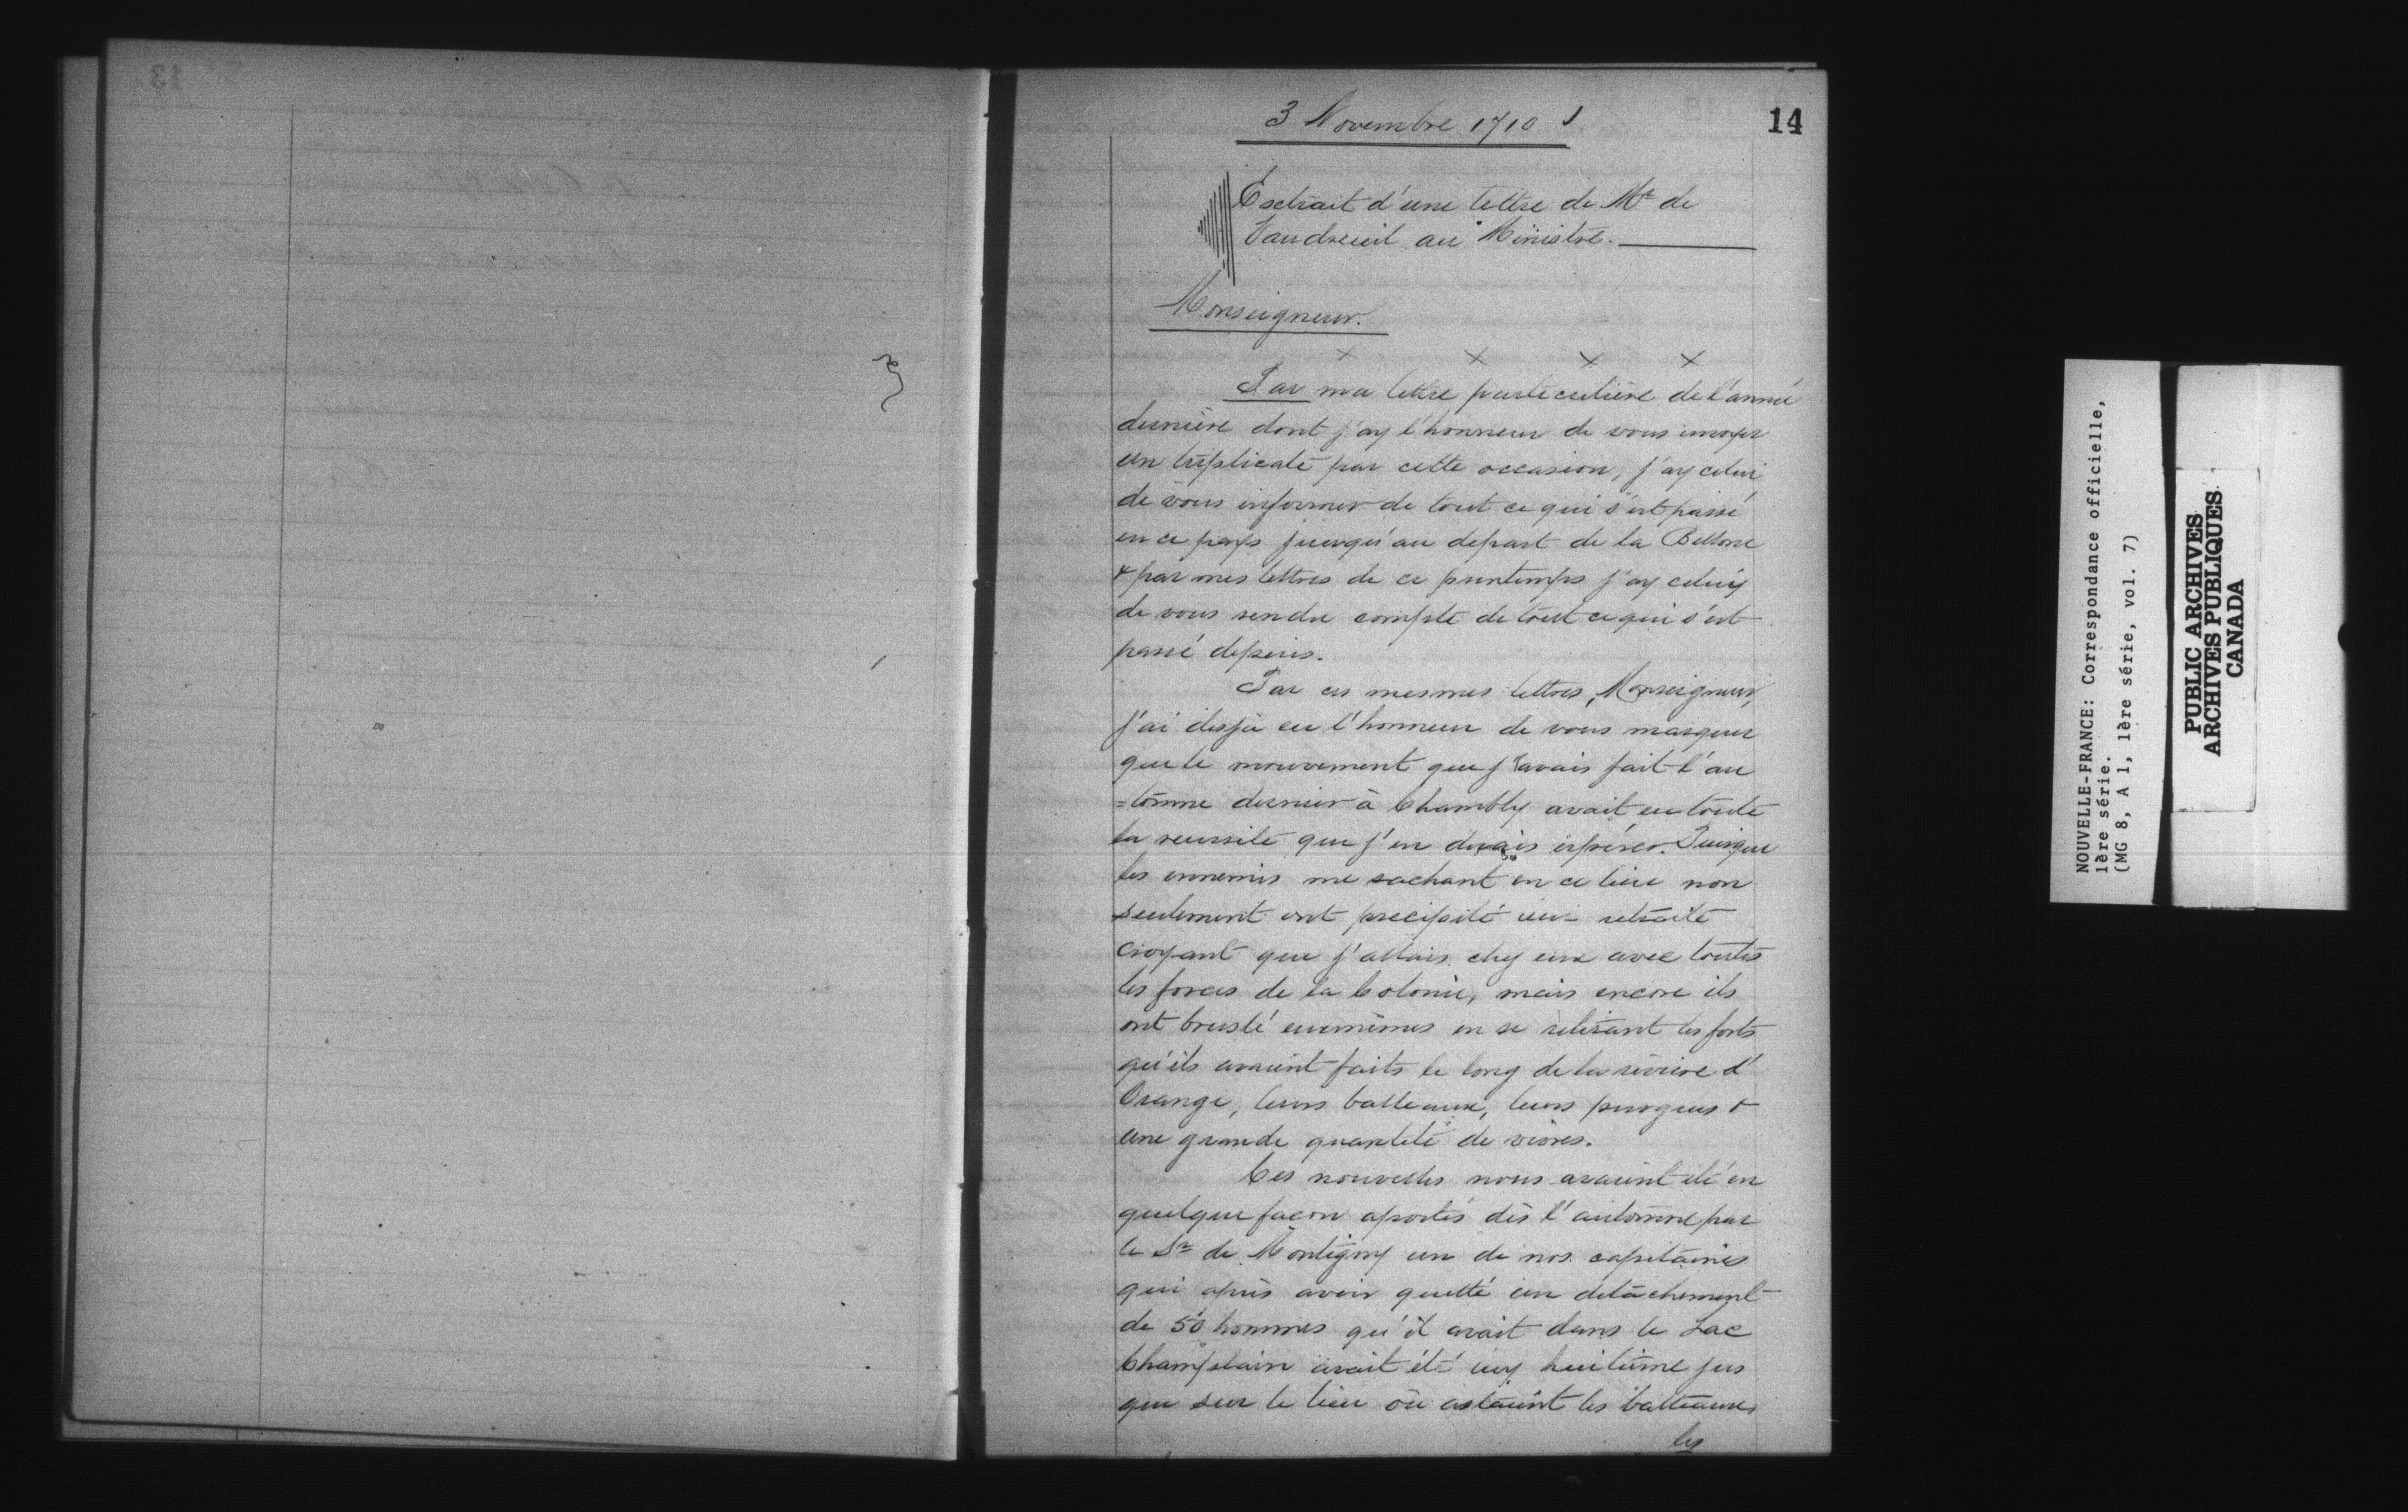 3 Novembre 1710
14
Extrait d'une lettre de Mr de
Vaudreuil au Ministre.
Monseigneur.
x x x x
Par ma lettre particulière de l'année
dernière dont j'ay l'honneur de vous envoyer
un triplicate par cette occasion, j'ay celui
de vous informer de tout ce qui s'est passé
en ce pays jusqu'au depart de la Bellone
& par mes lettres de ce printemps j'ay celuy
de vous rendre compte de tout ce qui s'est
passé depuis.
Par ces mesmes lettres, Monseigneur,
j'ai desja eu l'honneur de vous marquer
que le mouvement que j'avais fait l'au
=tomne dernier à Chambly avait eu toute
la reussite que j'en devais espérer. Puisque
les ennemis me sachant en ce lieu non
seulement ont precipité leur retraite
croyant que j'allais chez eux avec toutes
les forces de la Colonie, mais encore ils
ont bruslé euxmêmes en se retirant les forts
qu'ils avaient faits le long de la rivière d'
Orange, leurs batteaux, leurs pirogues &
une grande quantité de vivres.
Ces nouvelles nous avaient été en
quelque facon aportés dès l'automne par
le Sr de Montigny un de nos capitaines
qui après avoir quitté un détachement
de 50 hommes qu'il avait dans le Lac
Champlain avait été luy huitième jus
que sur le lieu où estaient les batteaux
les
13
NOUVELLE-FRANCE: Correspondance officielle,
1ère série.
(MG 8, A 1, 1ère série, vol. 7)
PUBLIC ARCHIVES
ARCHIVES PUBLIQUES
CANADA